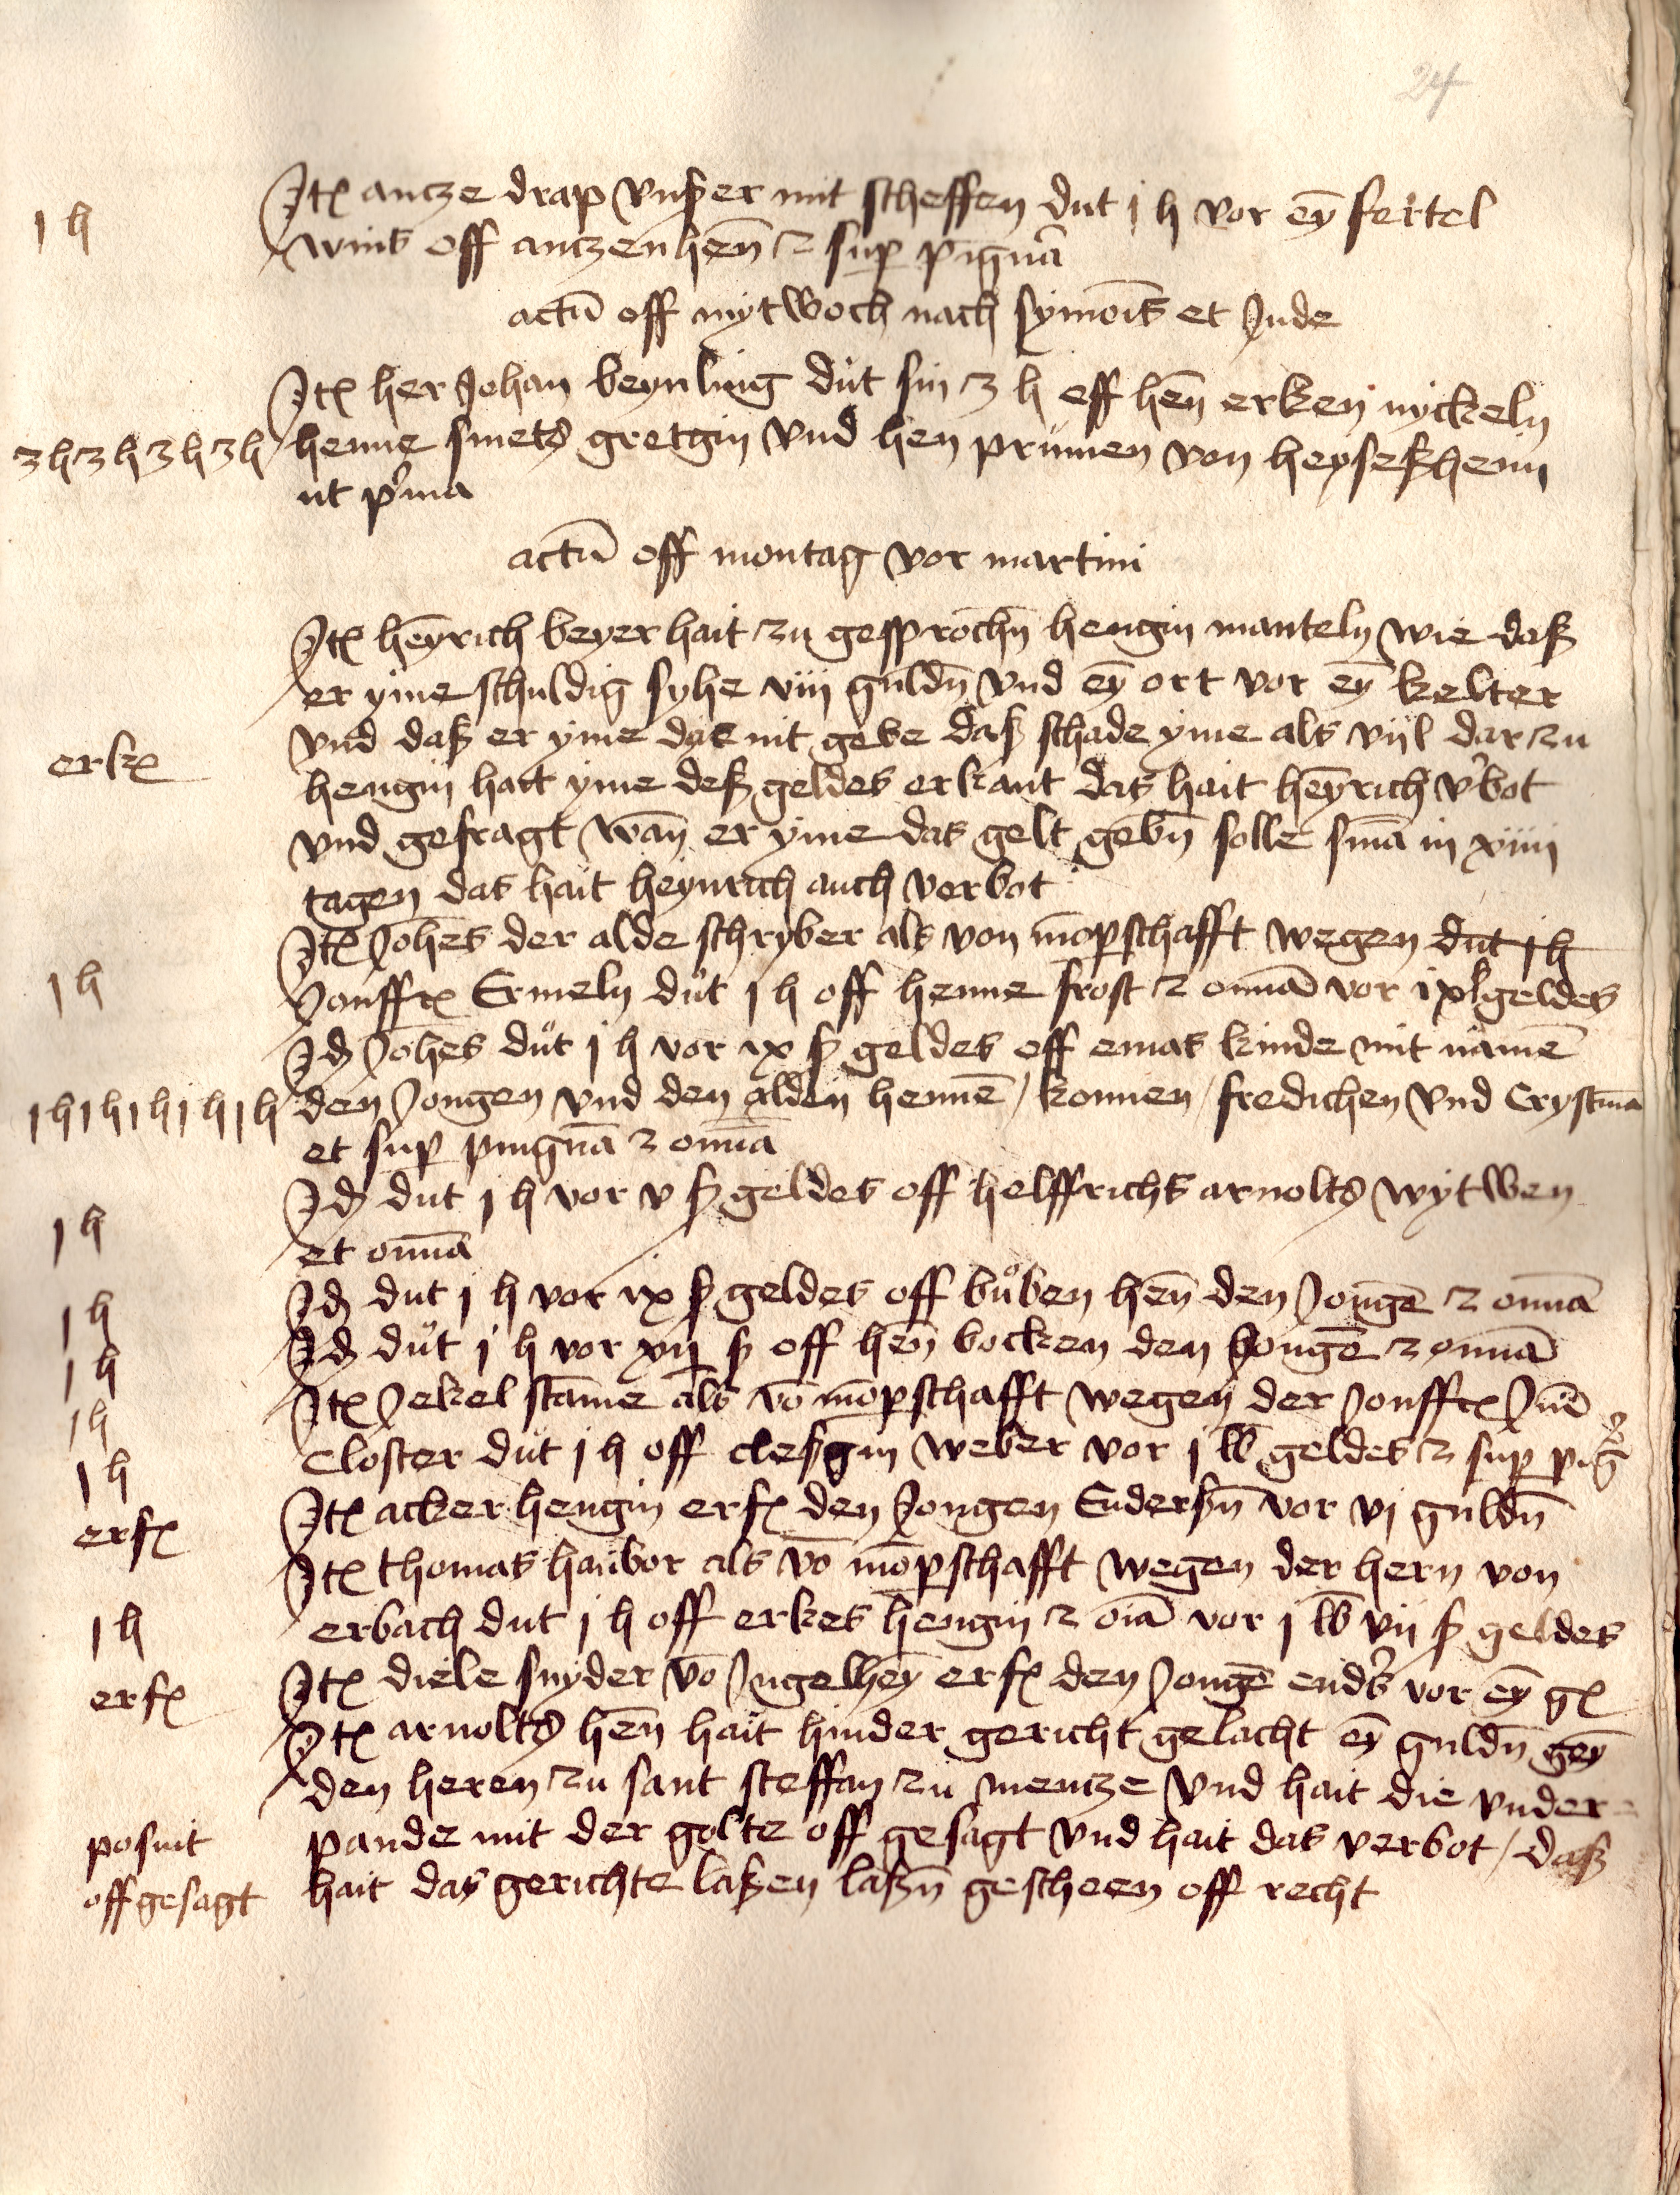 24
Jt(em) antze drap vnß er mit scheffen dut j h vor ey̅ fertel
j h
wins off antzenhen̅ ⁊ sup(er) pigna̅
actu̅ off mytwoch nach symois̅ et Jude
Jt(em) her Johan beynling dut sin 3 h off hen̅ erken nyckeln
3 h 3 h 3 h 3 h
henne smets gretgin vnd hen̅ prumen von heyseßheim
ut p(ri)ma
actu̅ off montag vor martini
Jt(em) hey̅rich beyer hait zu gesprochn̅ hengin manteln wie daß
er yme schuldig syhe viij guldn̅ vnd ey̅ ort vor ey̅ kelter
vnd daß er yme das nit gebe daß schade yme als vijl dar zu
erk(ant)
hengin hait yme deß geldes erkant das hait hey̅rich v(er)bot
vnd gefragt wan̅ er yme das gelt gebn̅ solle s(e)n̅a in xiiij
tagen das hait heynrich auch verbot
Jt(em) Joh̅es der alde schryber als von mo̅p(ar)schafft wegen dut j h
j h
Jonffr(auwe) Ermeln dut j h off henne frost ⁊ om̅a vor ix lb geldes
Jd(em) Joh̅es dut j h vor ix ß geldes off emas kinde mit name̅
j h j h j h j h j h
den Jongen vnd den alden henne̅ / konnen / fredichen vnd Crystma̅
et sup(er) pingna̅ ⁊ om̅a
Jd(em) dut j h vor v ß geldes off helffrichs arnolts wytwen
j h
et om̅a
j h
Jd(em) dut j h vor ix ß geldes off buͦben hen̅ den Jonge̅ ⁊ om̅a
j h
Jd(em) dut j h vor xij ß off hen̅ bocken den Jonge̅ ⁊ om̅a
j h
Jt(em) Jekel stam̅e als vo̅ mo̅p(ar)schafft wegen der Jonffr(auwen) Jn̅e
j h
Closter dut j h off cleßgin weber vor j lb geldes ⁊ sup(er) pig̅
erf(olgt)
Jt(em) acker hengin erf(olgt) den Jongen Enderßn̅ vor vj guldn̅
Jt(em) thomas haubor als vo̅ mo̅p(ar)schafft wegen der hern von
j h
erbach dut j h off erkes hengin ⁊ oi̅a vor j lb vij ß geldes
erf(olgt)
Jt(em) diele snyder vo̅ Jngelhey̅ erf(olgt) den Jonge̅ end(er)s vor ey̅ g(ulden)
Jt(em) arnolts hen̅ hait hinder gericht gelacht ey̅ guldn̅ gey̅
den heren zu sant steffan zu mentze vnd hait die vnder-
posuit
pande mit der golte off gesagt vnd hait das verbot / daß
offgesagt
hait das gerichte laßen laßn̅ gescheen off recht